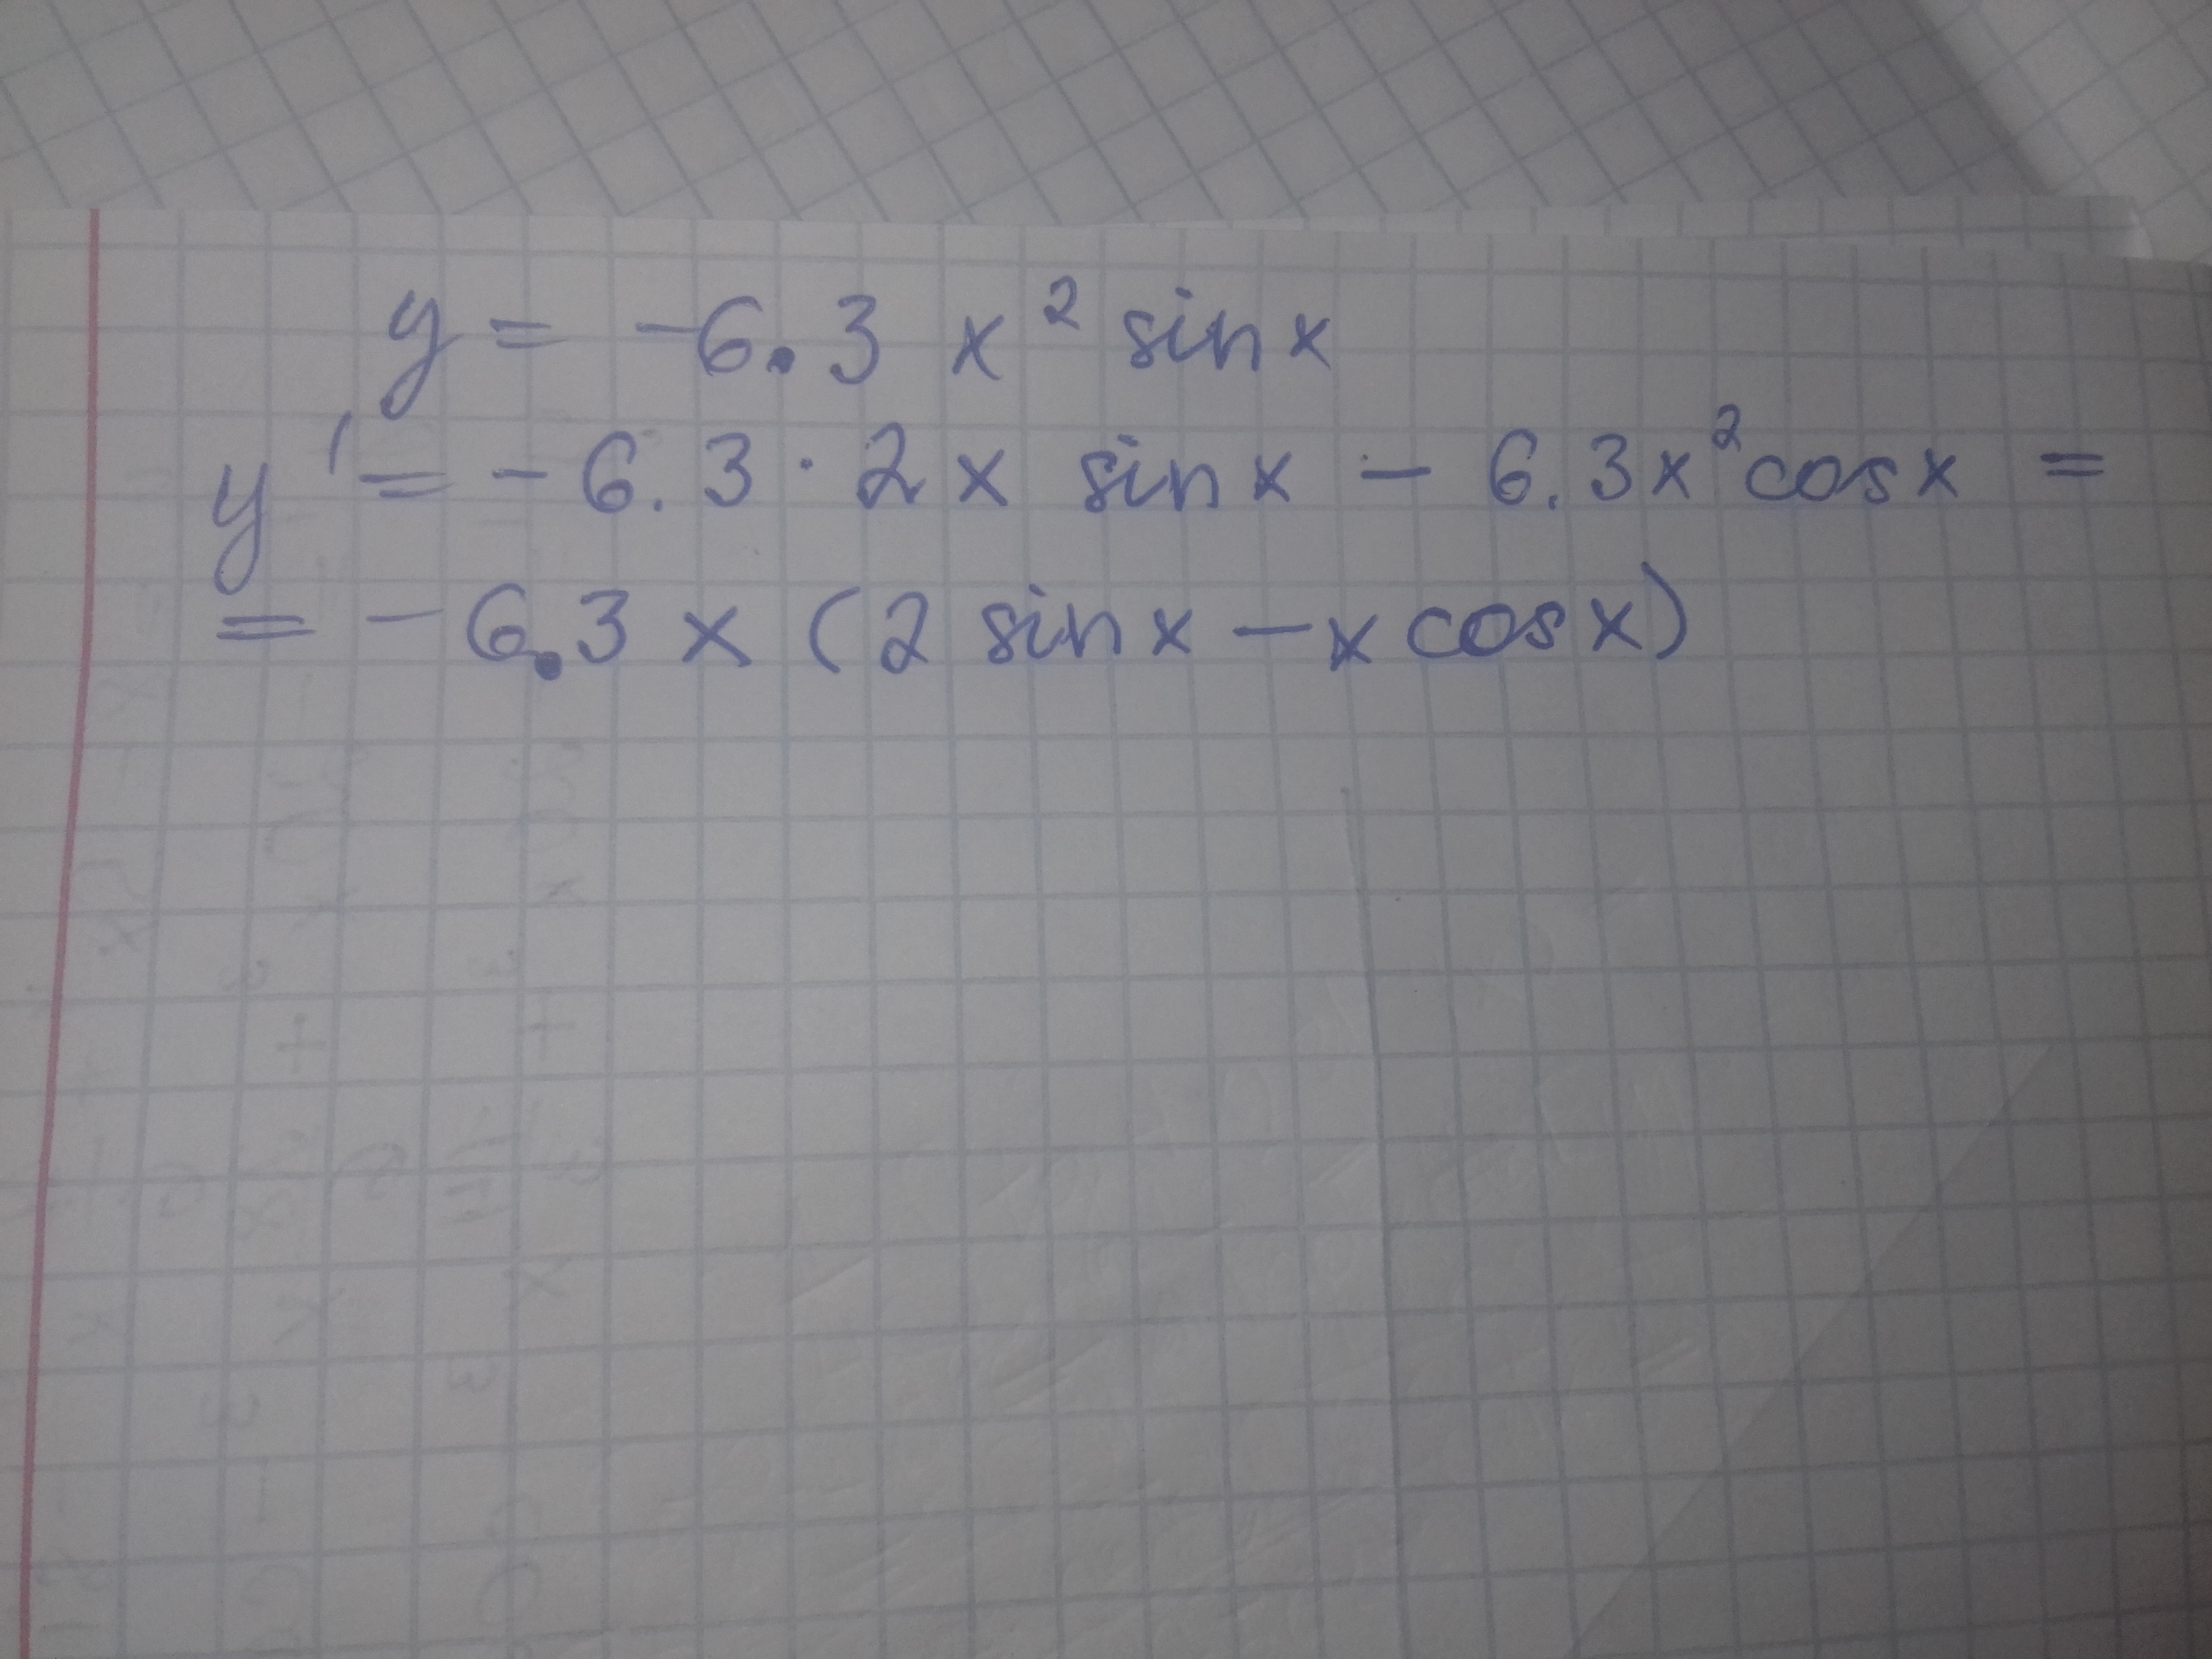 y = -6.3 x² sin x
y' = -6.3 · 2x sin x - 6.3x² cos x =
= -6.3 x (2 sin x - x cos x)